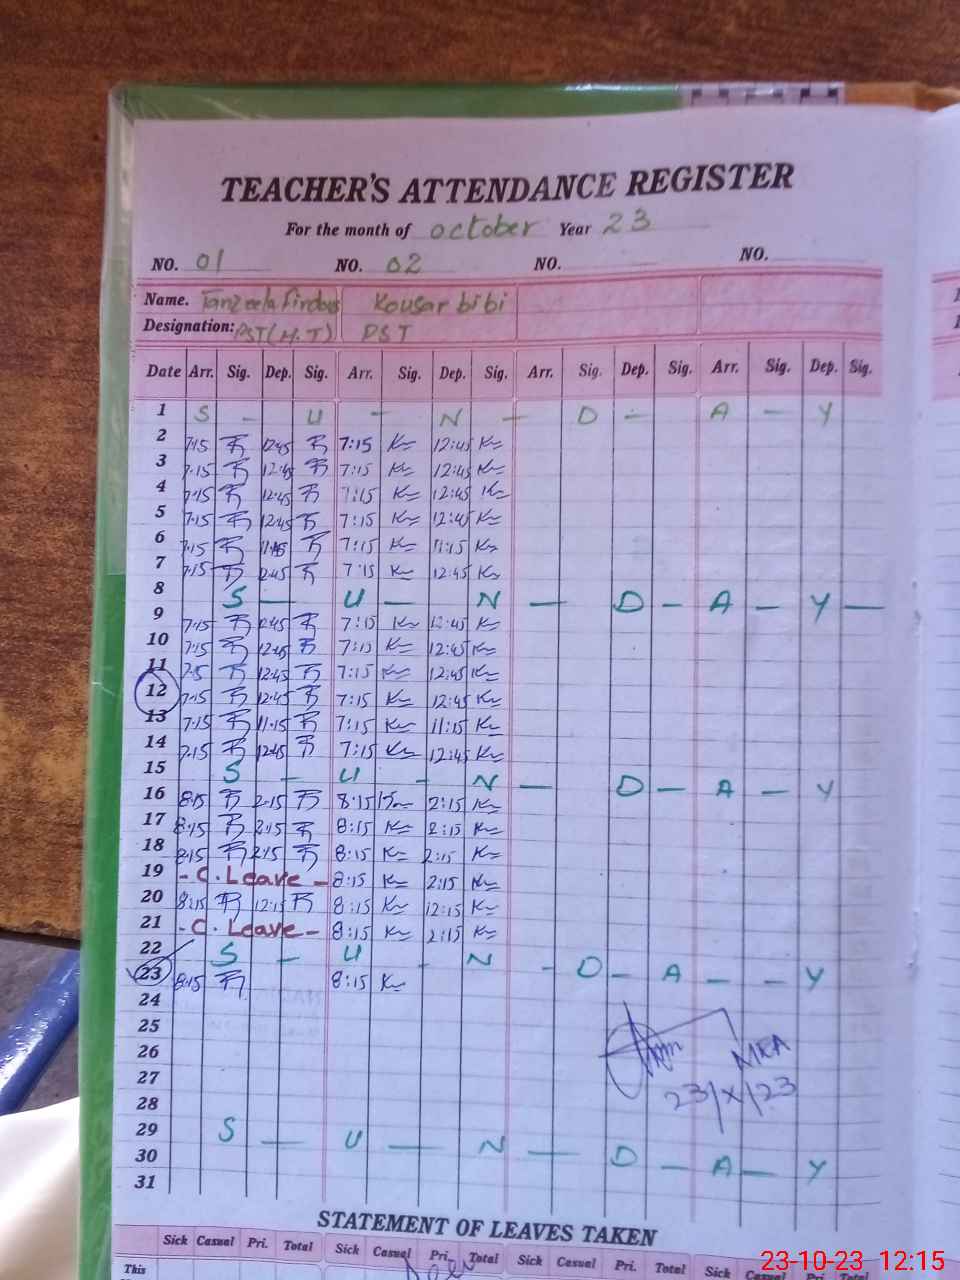 TEACHER'S ATTENDANCE REGISTER
For the month of october Year 23
NO. 01 NO. 02 NO. NO.
Name. Tanzeela firdous Kousar bibi
Designation: PST(H.T) PST
Date Arr. Sig. Dep. Sig. Arr. Sig. Dep. Sig. Arr. Sig. Dep. Sig. Arr. Sig. Dep. Sig.
1 S - U - N - D - A - Y
2 7:15 12:45 7:15 12:45
3 7:15 12:45 7:15 12:45
4 7:15 12:45 7:15 12:45
5 7:15 12:45 7:15 12:45
6 7:15 7:15 11:15
7 7:15 12:45 7:15 12:45
8 S - U - N - D - A - Y -
9 7:15 12:45 7:15 12:45
10 7:15 12:45 7:15 12:45
11 7:15 12:45 7:15 12:45
12 7:15 12:45 7:15 12:45
13 7:15 11:15 7:15 11:15
14 7:15 12:45 7:15 12:45
15 S - U - N - D - A - Y
16 8:15 2:15 8:15 2:15
17 8:15 2:15 8:15 2:15
18 8:15 2:15 8:15 2:15
19 - C. Leave - 8:15 2:15
20 8:15 12:15 8:15 12:15
21 - C. Leave - 8:15 2:15
22 S - U - N - D - A - - Y
23 8:15 8:15
24
25
26 MEA
27 23/X/23
28
29 S - U - N - D - A - Y
30
31
STATEMENT OF LEAVES TAKEN
Sick Casual Pri. Total Sick Casual Pri. Total Sick Casual Pri. Total Sick Casual Pri. Total
This
23-10-23 12:15